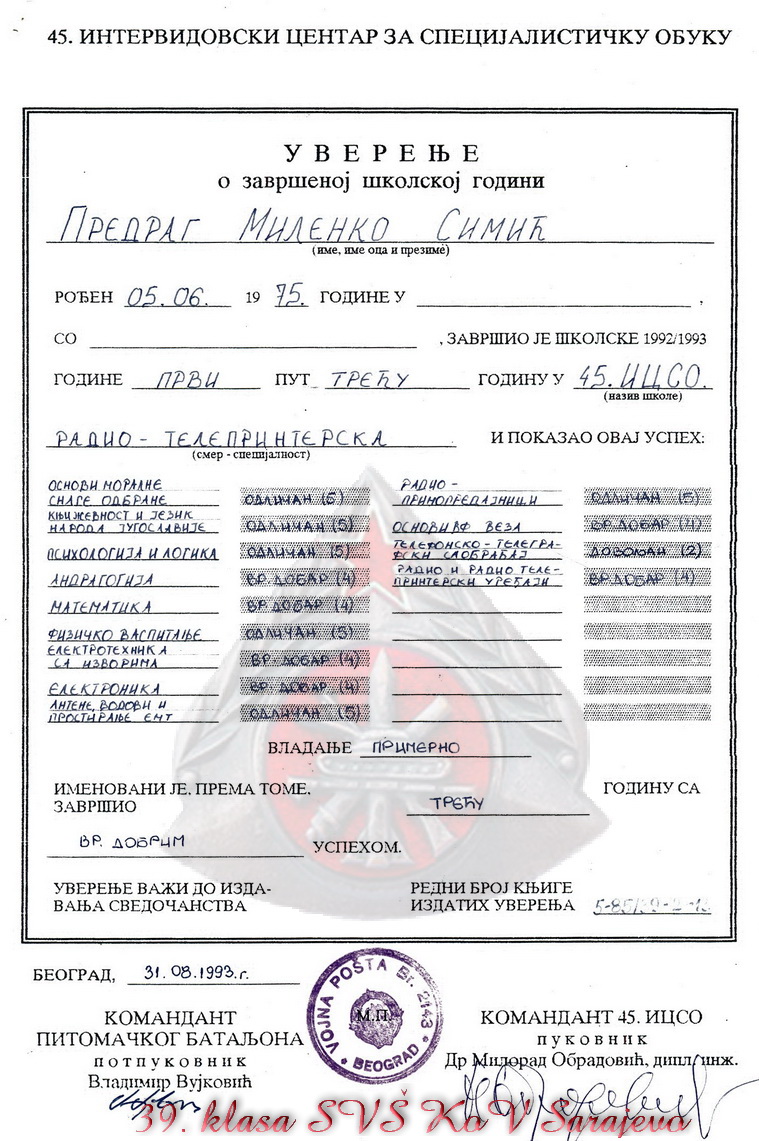 45. ИНТЕРВИДОВСКИ ЦЕНТАР ЗА СПЕЦИЈАЛИСТИЧКУ ОБУКУ
УВЕРЕЊЕ
о завршеној школској години
ПРЕДРАГ МИЛЕНКО СИМИЋ
(име, име оца и презиме)
РОЂЕН 05.06. 19 75. ГОДИНЕ У ,
СО , ЗАВРШИО ЈЕ ШКОЛСКЕ 1992/1993
ГОДИНЕ ПРВИ ПУТ ТРЕЋУ ГОДИНУ У 45. ИЦСО.
(назив школе)
РАДИО - ТЕЛЕПРИНТЕРСКА И ПОКАЗАО ОВАЈ УСПЕХ:
(смер - специјалност)
ОСНОВИ МОРАЛНЕ
СНАГЕ ОДБРАНЕ ОДЛИЧАН (5)
КЊИЖЕВНОСТ И ЈЕЗИК
НАРОДА ЈУГОСЛАВИЈЕ ОДЛИЧАН (5)
ПСИХОЛОГИЈА И ЛОГИКА ОДЛИЧАН (5)
АНДРАГОГИЈА ВР. ДОБАР (4)
МАТЕМАТИКА ВР. ДОБАР (4)
ФИЗИЧКО ВАСПИТАЊЕ ОДЛИЧАН (5)
ЕЛЕКТРОТЕХНИКА
СА ИЗВОРИМА ВР. ДОБАР (4)
ЕЛЕКТРОНИКА ВР. ДОБАР (4)
АНТЕНЕ, ВОДОВИ И
ПРОСТИРАЊЕ ЕМТ ОДЛИЧАН (5)
РАДИО -
ПРИМОПРЕДАЈНИЦИ ОДЛИЧАН (5)
ОСНОВИ ВФ ВЕЗА ВР. ДОБАР (4)
ТЕЛЕФОНСКО - ТЕЛЕГРА-
ФСКИ САОБРАЋАЈ ДОВОЉАН (2)
РАДИО И РАДИО ТЕЛЕ-
ПРИНТЕРСКИ УРЕЂАЈИ ВР. ДОБАР (4)
ВЛАДАЊЕ ПРИМЕРНО
ИМЕНОВАНИ ЈЕ, ПРЕМА ТОМЕ,
ЗАВРШИО ТРЕЋУ ГОДИНУ СА
ВР. ДОБРИМ УСПЕХОМ.
УВЕРЕЊЕ ВАЖИ ДО ИЗДА-
ВАЊА СВЕДОЧАНСТВА
РЕДНИ БРОЈ КЊИГЕ
ИЗДАТИХ УВЕРЕЊА
БЕОГРАД, 31.08.1993.г.
VOJNA POŠTA Br. 2143
BEOGRAD
М.П.
КОМАНДАНТ
ПИТОМАЧКОГ БАТАЉОНА
потпуковник
Владимир Вујковић
КОМАНДАНТ 45. ИЦСО
пуковник
Др Милорад Обрадовић, дипл.инж.
39. klasa SVŠ KoV Sarajevo